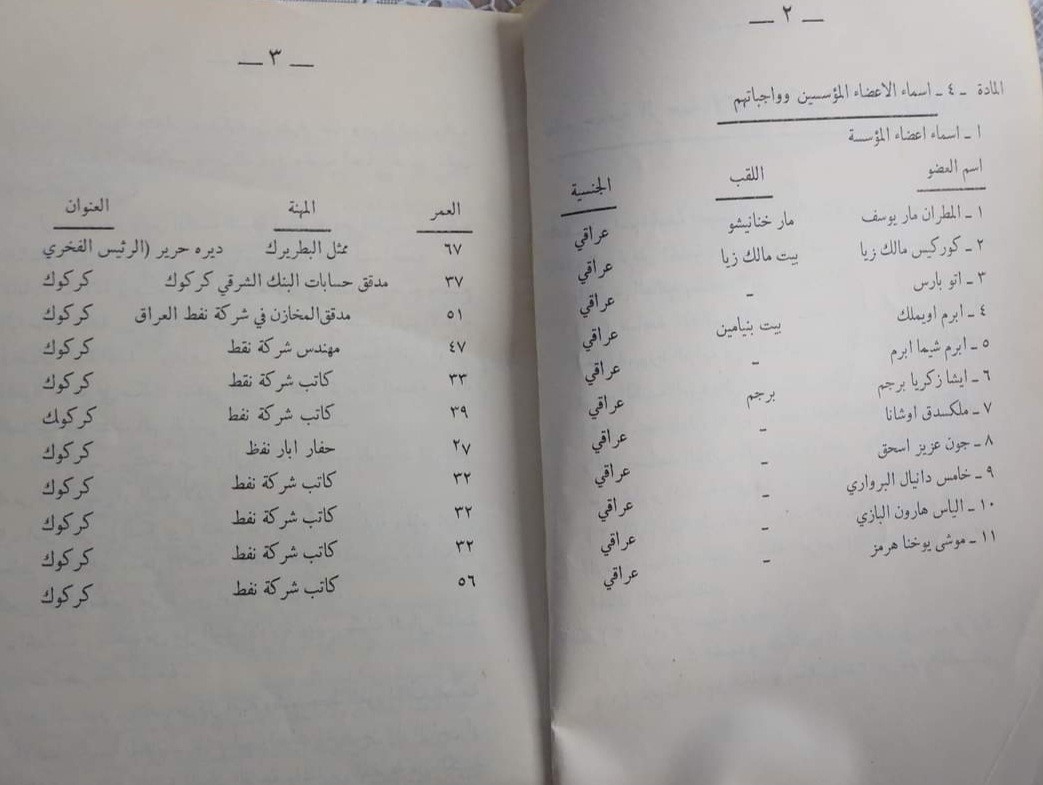 — ٢ —
المادة ـ ٤ ـ اسماء الاعضاء المؤسسين وواجباتهم
١ ـ اسماء اعضاء المؤسسة
اسم العضو اللقب الجنسية
١ ـ المطران مار يوسف مار خنانيشو عراقي
٢ ـ كوركيس مالك زيا بيت مالك زيا عراقي
٣ ـ اتو بارس ـ عراقي
٤ ـ ابرم اويملك بيت بنيامين عراقي
٥ ـ ابرم شيما ابرم ـ عراقي
٦ ـ ايشا زكريا برجم برجم عراقي
٧ ـ ملكسدق اوشانا ـ عراقي
٨ ـ جون عزيز اسحق ـ عراقي
٩ ـ خامس دانيال البرواري ـ عراقي
١٠ ـ الياس هارون البازي ـ عراقي
١١ ـ موشى يوخنا هرمز ـ عراقي
— ٣ —
العمر المهنة العنوان
٦٧ ممثل البطريرك ديره حرير (الرئيس الفخري
٣٧ مدقق حسابات البنك الشرقي كركوك كركوك
٥١ مدقق المخازن في شركة نفط العراق كركوك
٤٧ مهندس شركة نقط كركوك
٣٣ كاتب شركة نقط كركوك
٣٩ كاتب شركة نفط كركوك
٢٧ حفار ابار نفظ كركوك
٣٢ كاتب شركة نفط كركوك
٣٢ كاتب شركة نفط كركوك
٣٢ كاتب شركة نفط كركوك
٥٦ كاتب شركة نفط كركوك